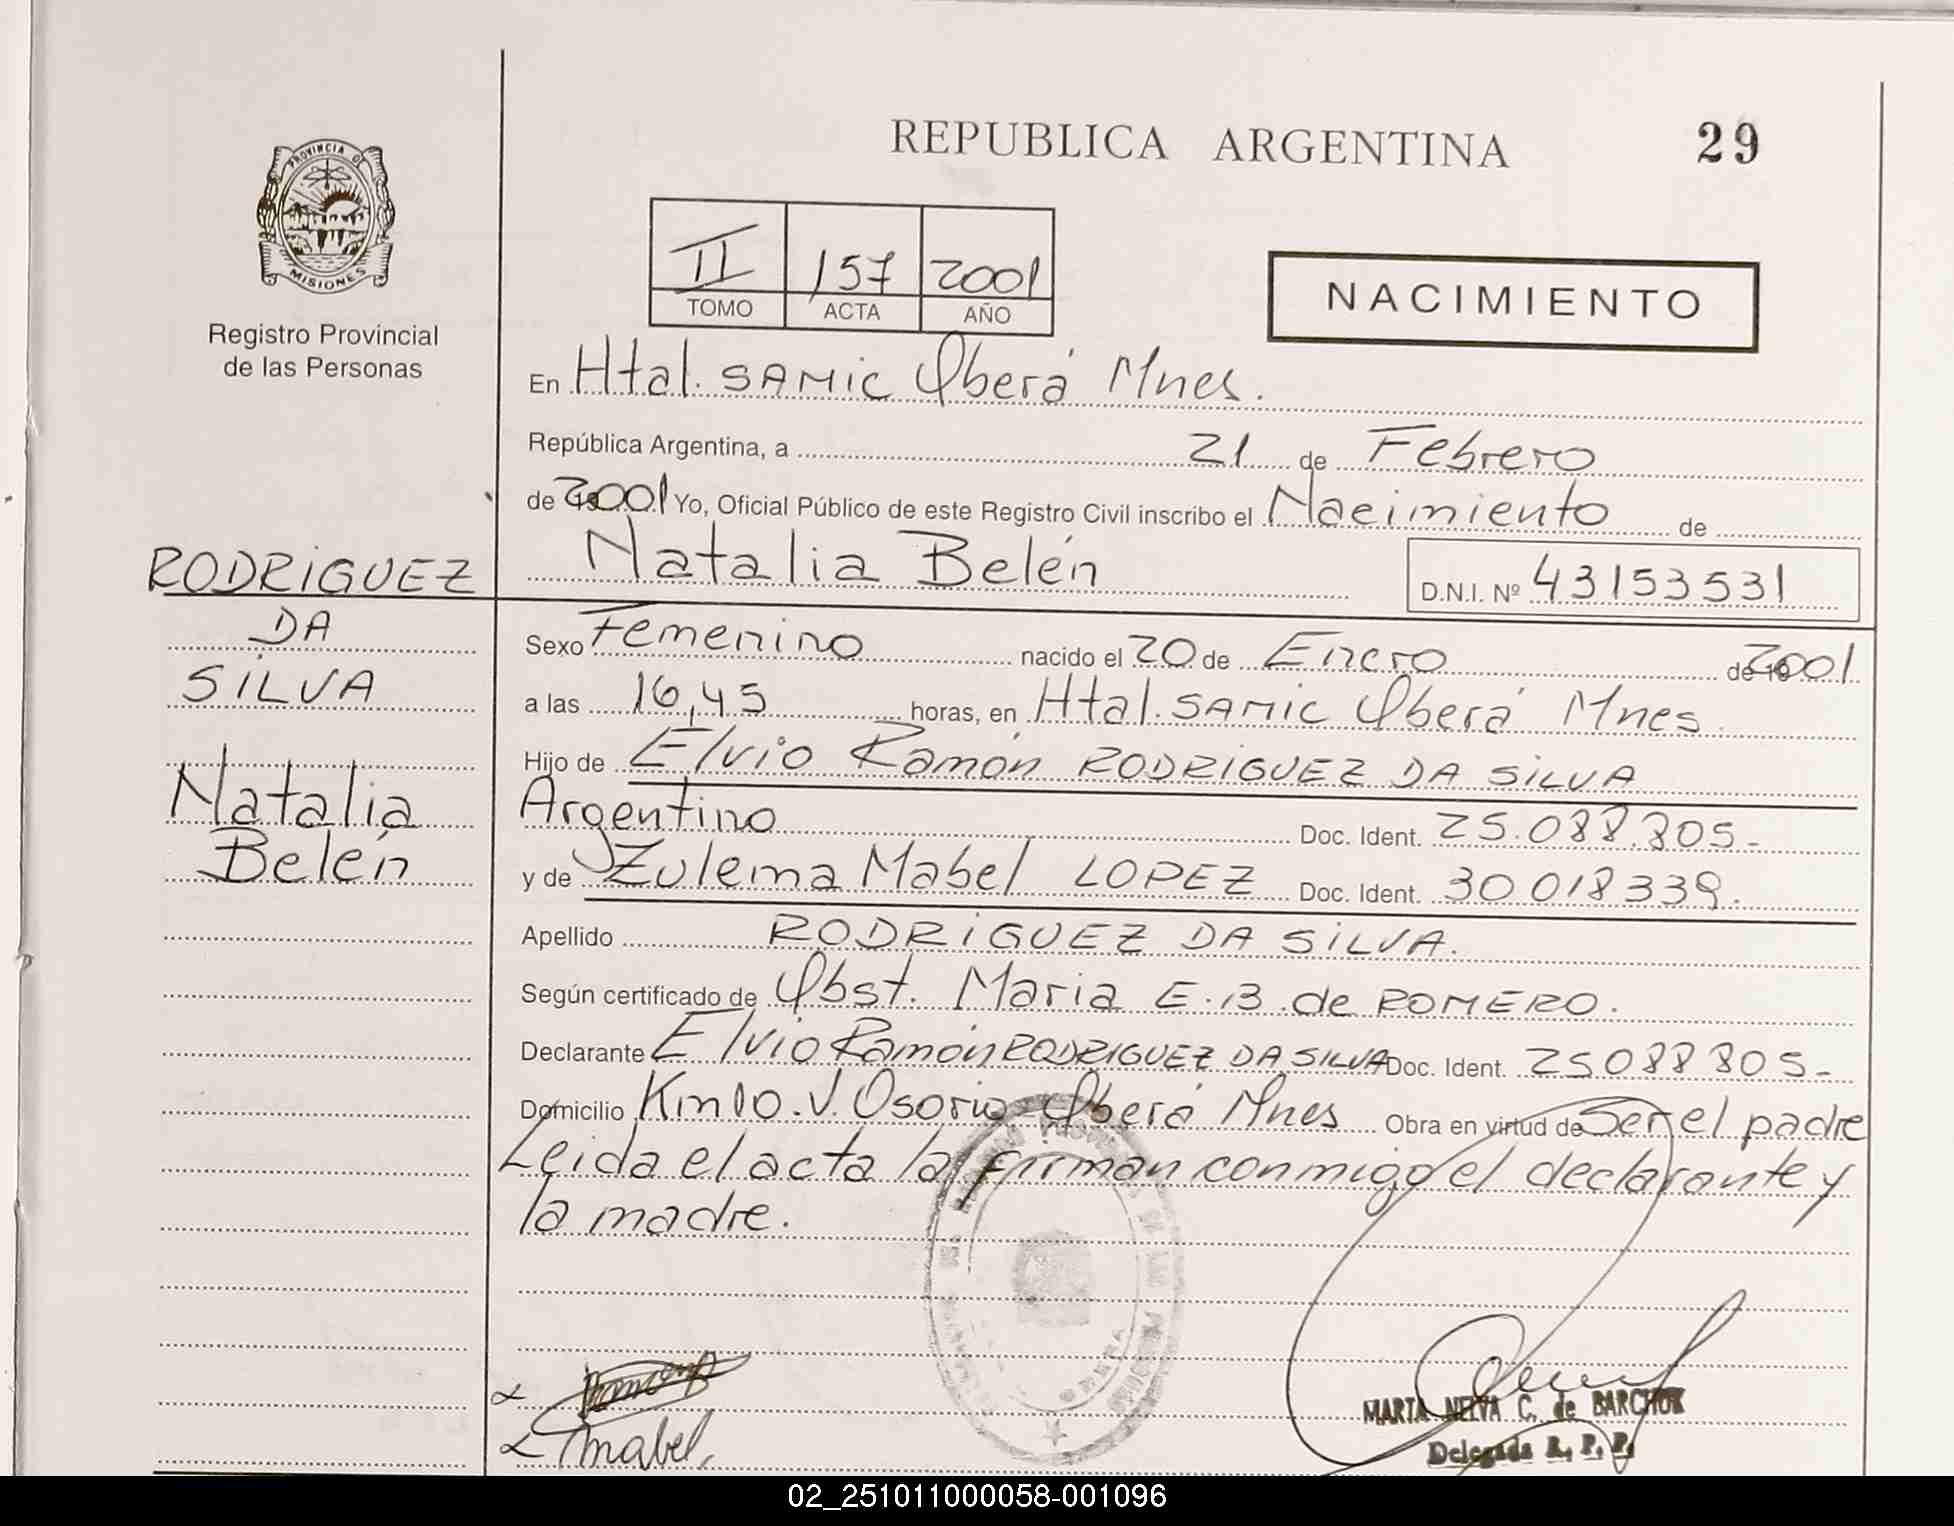 REPUBLICA ARGENTINA
29
PROVINCIA DE
MISIONES
Registro Provincial
de las Personas
II 157 2001
TOMO ACTA AÑO
NACIMIENTO
En Htal. SAMIC Oberá Mnes.
República Argentina, a 21 de Febrero
de 2001 Yo, Oficial Público de este Registro Civil inscribo el Nacimiento de
Natalia Belén
D.N.I. Nº 43153531
RODRIGUEZ
DA
SILVA
Natalia
Belén
Sexo Femenino nacido el 20 de Enero de 2001
a las 16,45 horas, en Htal. SAMIC Oberá Mnes.
Hijo de Elvio Ramón RODRIGUEZ DA SILVA
Argentino Doc. Ident. 25.088.805-
y de Zulema Mabel LOPEZ Doc. Ident. 30018339.
Apellido RODRIGUEZ DA SILVA.
Según certificado de Obst. Maria E.B. de ROMERO.
Declarante Elvio Ramón RODRIGUEZ DA SILVA Doc. Ident. 25088805-
Domicilio Km 10. V. Osorio Oberá Mnes Obra en virtud de Ser el padre
Leida el acta la firman conmigo el declarante y
la madre.
Mabel
MARTA NEIVA C. de BARCHUK
Delegada R. P. P.
02_251011000058-001096